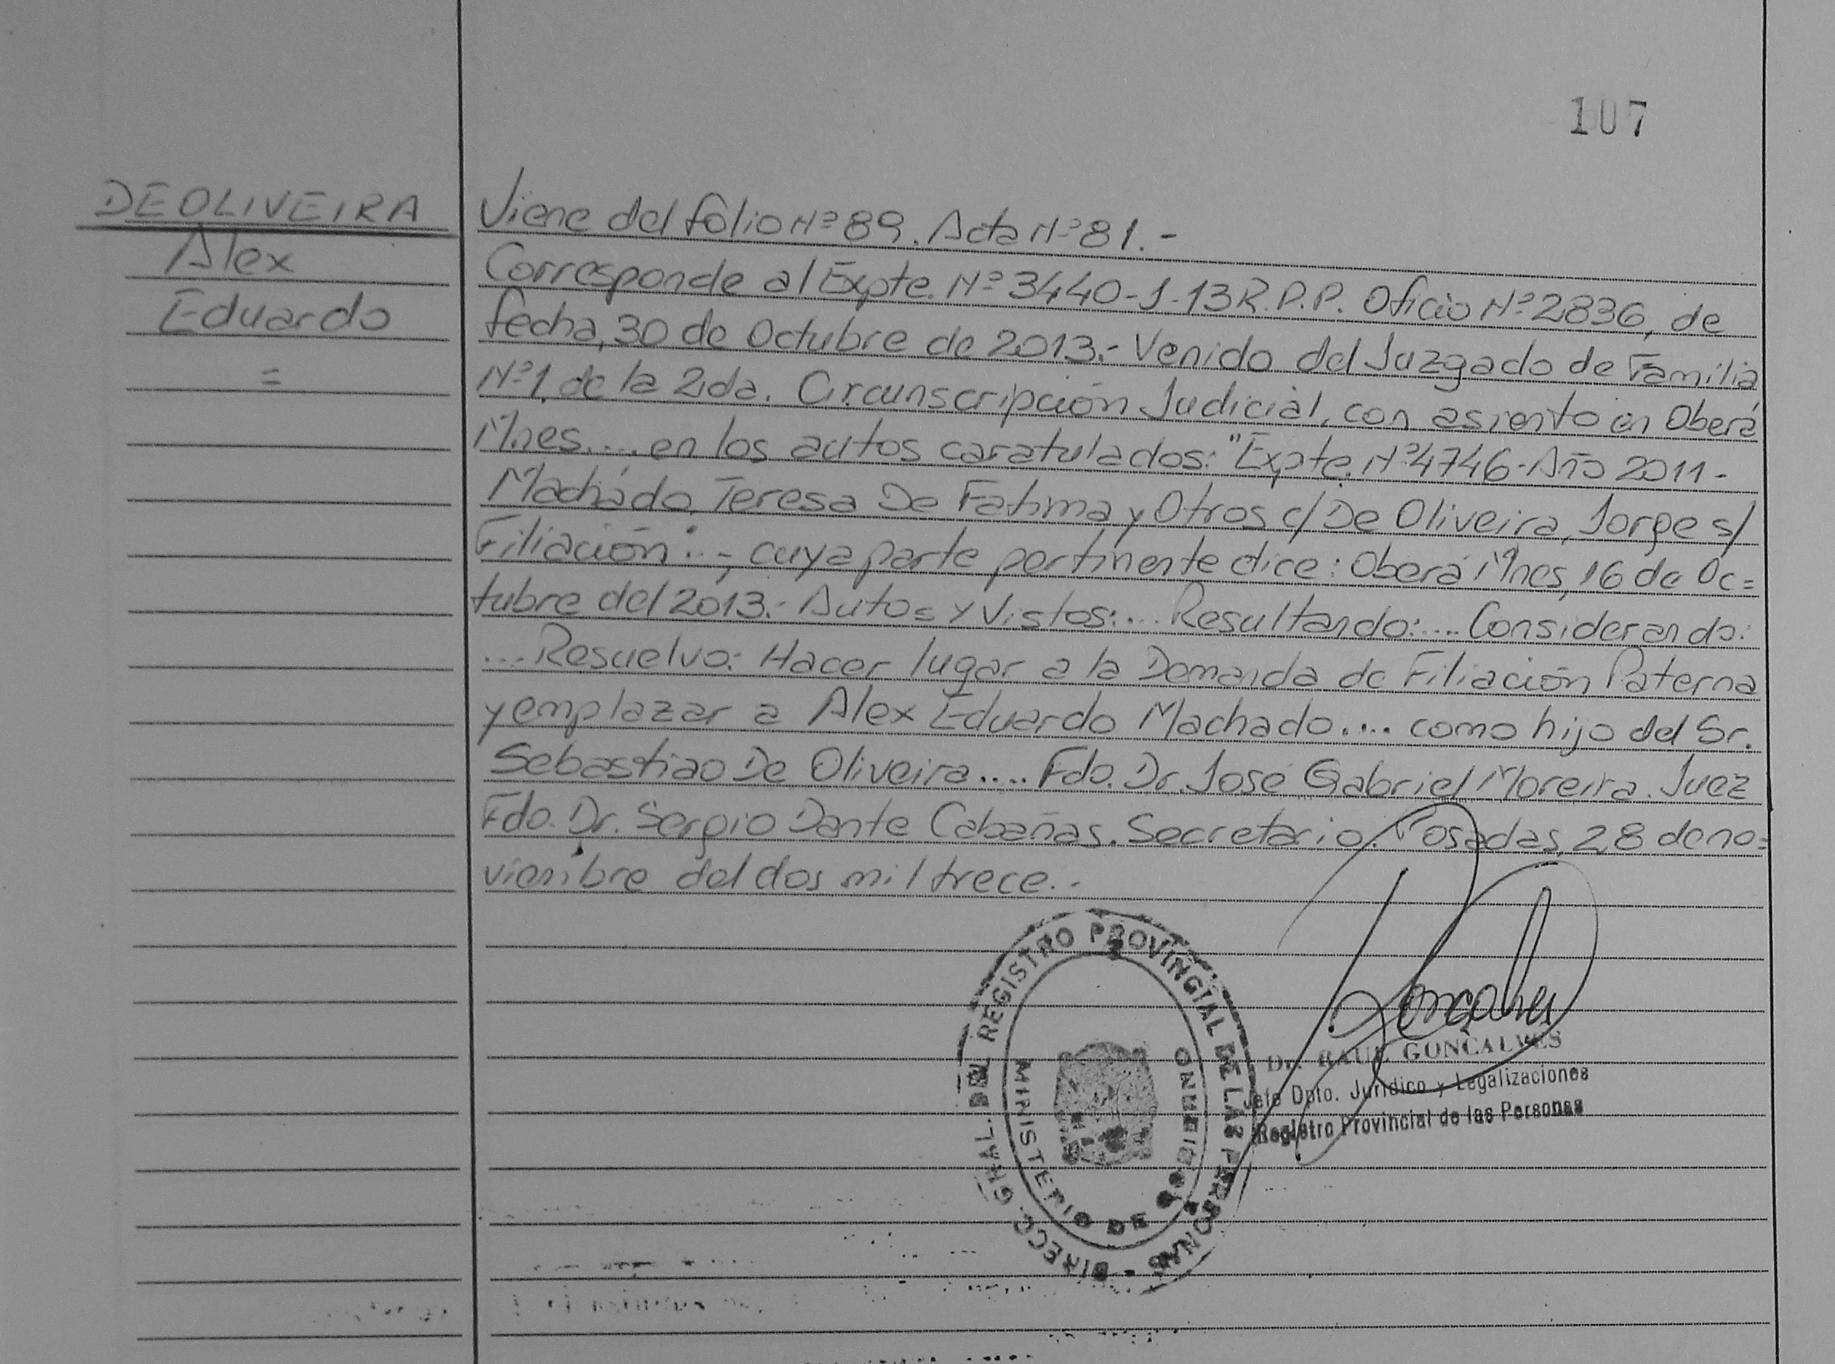 107
DE OLIVEIRA
Alex
Eduardo
=
Viene del folio Nº 89. Acta Nº 81.-
Corresponde al Expte. Nº 3440-J-13 R.P.P. Oficio Nº 2836, de
fecha, 30 de Octubre de 2013.- Venido del Juzgado de Familia
Nº1, de la 2da. Circunscripción Judicial, con asiento en Oberá
Mnes.... en los autos caratulados: "Expte. Nº 4746-Año 2011-
Machado, Teresa De Fatima y Otros c/ De Oliveira, Jorge s/
Filiación".-, cuya parte pertinente dice: Oberá Mnes, 16 de Oc=
tubre del 2013.- Autos y Vistos:... Resultando:.... Considerando:
... Resuelvo: Hacer lugar a la Demanda de Filiación Paterna
y emplazar a Alex Eduardo Machado.... como hijo del Sr.
Sebastiao De Oliveira.... Fdo. Dr. José Gabriel Moreira. Juez
Fdo. Dr. Sergio Dante Cabañas. Secretario. Posadas, 28 de no=
viembre del dos mil trece.-
DIRECC. GRAL. DEL REGISTRO PROVINCIAL DE LAS PERSONAS
MINISTERIO DE GOBIERNO
Dr. RAUL GONCALVES
Jefe Dpto. Jurídico y Legalizaciones
Registro Provincial de las Personas